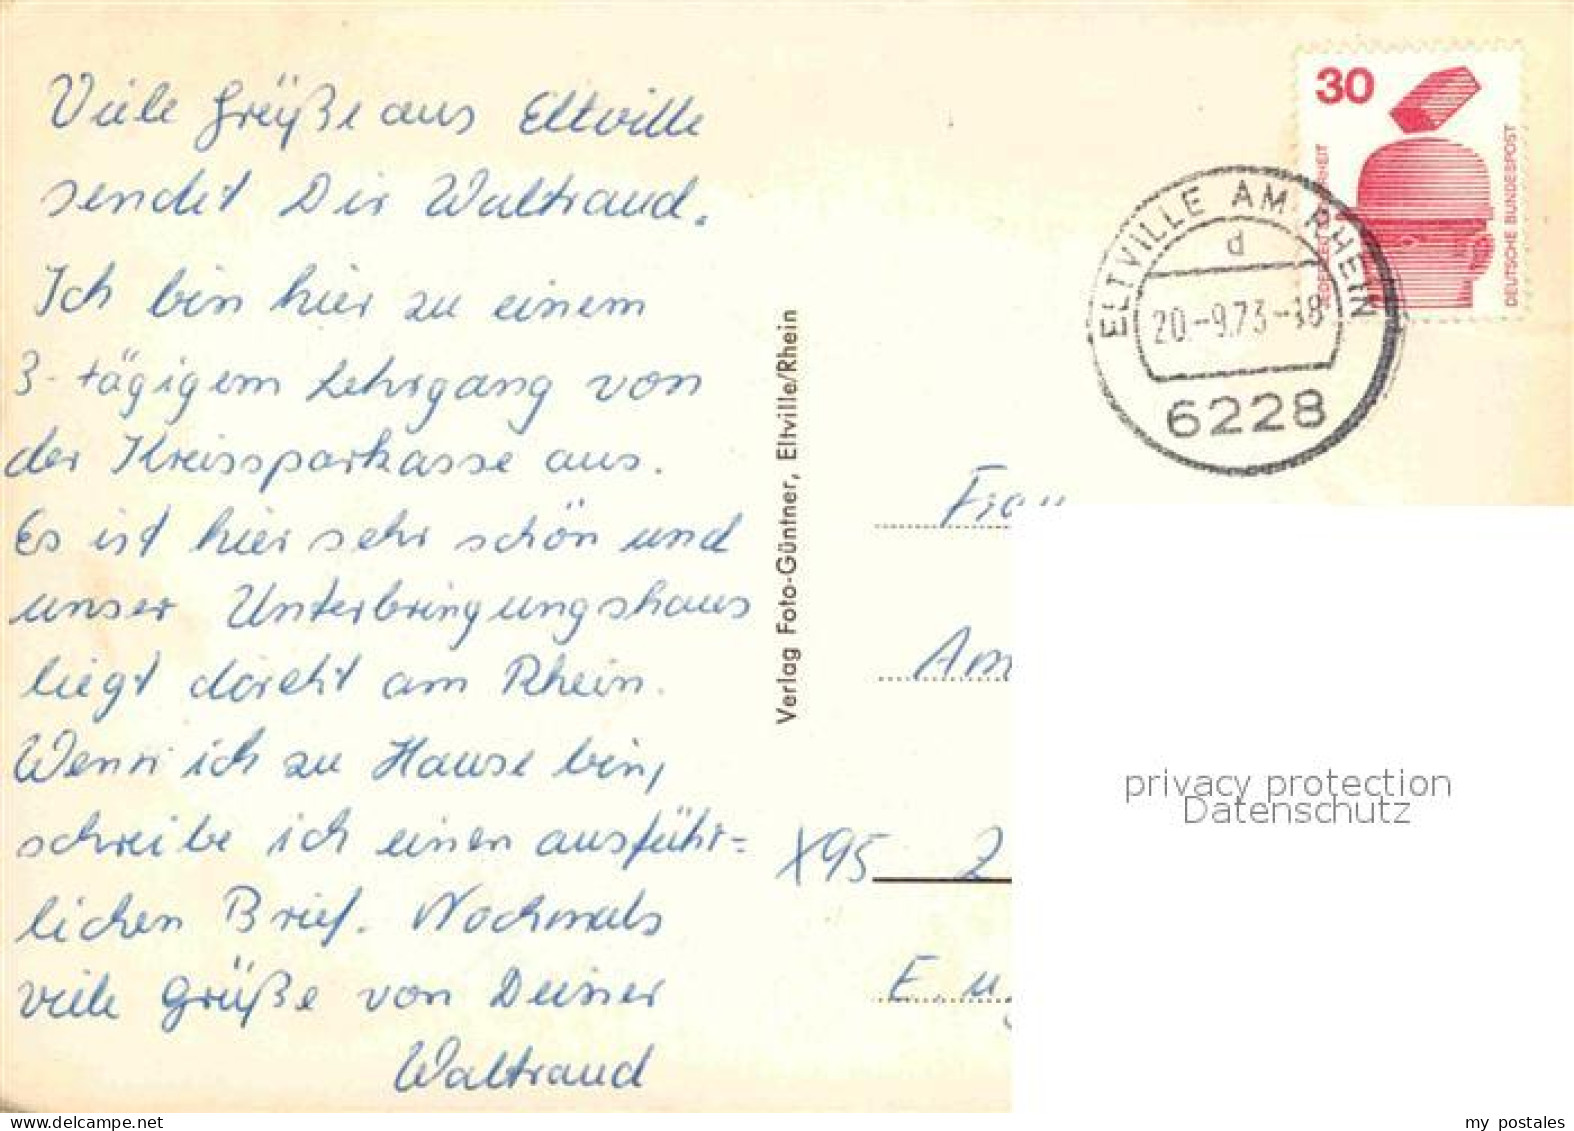 Viele Grüße aus Eltville
sendet Dir Waltraud.
Ich bin hier zu einem
3-tägigem Lehrgang von
der Kreissparkasse aus.
Es ist hier sehr schön und
unser Unterbringungshaus
liegt direkt am Rhein.
Wenn ich zu Hause bin,
schreibe ich einen ausführ=
lichen Brief. Nochmals
viele Grüße von Deiner
Waltraud
Verlag Foto-Güntner, Eltville/Rhein
30
DEUTSCHE BUNDESPOST
ELTVILLE AM RHEIN
d
20.-9.73-18
6228
Frau
Am
X95 2
E. u.
privacy protection
Datenschutz
my postales